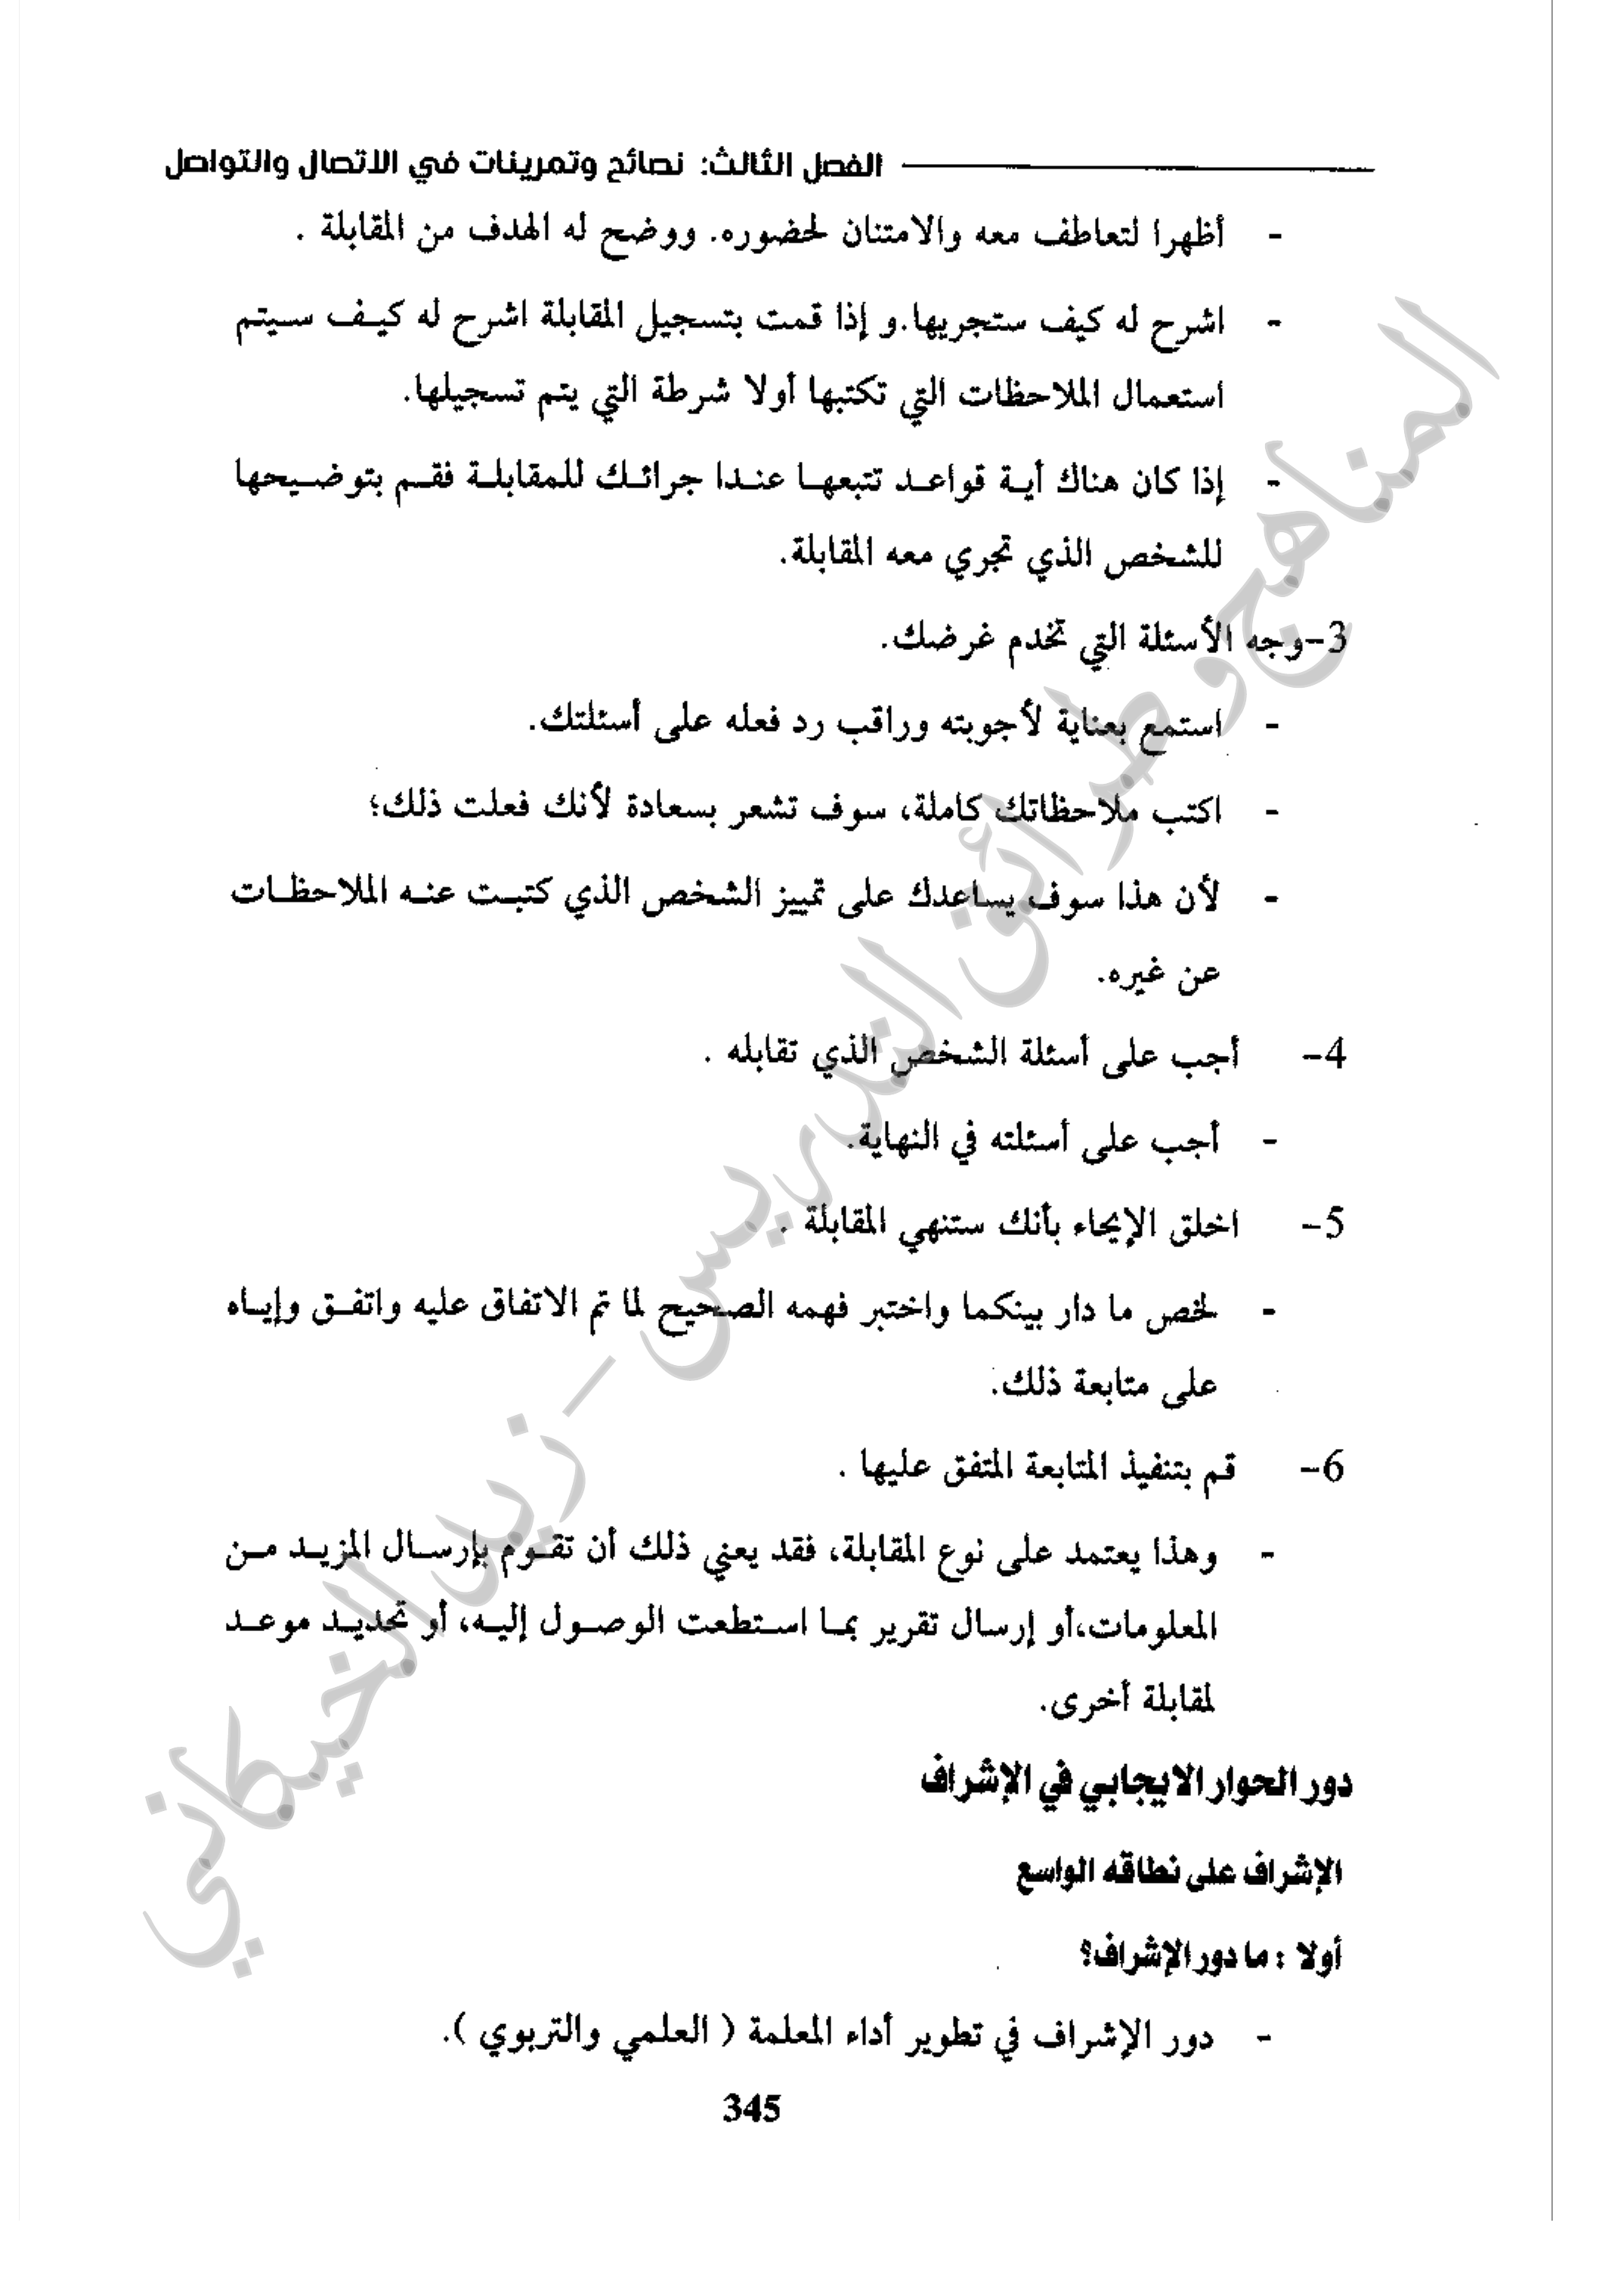 الفصل الثالث: نصائح وتمرينات في الاتصال والتواصل
- أظهرا لتعاطف معه والامتنان لحضوره. ووضح له الهدف من المقابلة .
- اشرح له كيف ستجريها.و إذا قمت بتسجيل المقابلة اشرح له كيف سيتم
استعمال الملاحظات التي تكتبها أولا شرطة التي يتم تسجيلها.
- إذا كان هناك أية قواعد تتبعها عندا جرائك للمقابلة فقم بتوضيحها
للشخص الذي تجري معه المقابلة.
3-وجه الأسئلة التي تخدم غرضك.
- استمع بعناية لأجوبته وراقب رد فعله على أسئلتك.
- اكتب ملاحظاتك كاملة، سوف تشعر بسعادة لأنك فعلت ذلك؛
- لأن هذا سوف يساعدك على تمييز الشخص الذي كتبت عنه الملاحظات
عن غيره.
4- أجب على أسئلة الشخص الذي تقابله .
- أجب على أسئلته في النهاية.
5- اخلق الإيحاء بأنك ستنهي المقابلة .
- لخص ما دار بينكما واختبر فهمه الصحيح لما تم الاتفاق عليه واتفق وإياه
على متابعة ذلك.
6- قم بتنفيذ المتابعة المتفق عليها .
- وهذا يعتمد على نوع المقابلة، فقد يعني ذلك أن تقوم بإرسال المزيد من
المعلومات،أو إرسال تقرير بما استطعت الوصول إليه، أو تحديد موعد
لمقابلة أخرى.
دور الحوار الايجابي في الإشراف
الإشراف على نطاقه الواسع
أولا : ما دور الإشراف؟
- دور الإشراف في تطوير أداء المعلمة ( العلمي والتربوي ).
345
المناهج وطرائق التدريس – زيد الخيكاني